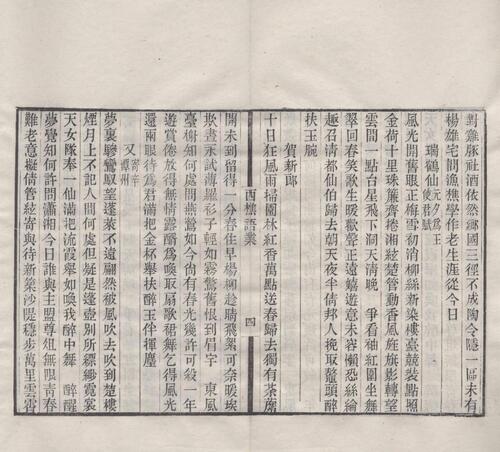 對雞豚社酒依然鄉國三徑不成陶令隱一區未有
楊雄宅問漁樵學作老生涯從今日
瑞鶴仙 元夕爲王使君賦
風光開舊眼正梅雪初消柳絲新染樓臺競裝點照
金荷十里珠簾齊捲湘絃楚管動香風旌旗影轉望
雲間一點台星飛下洞天清晚 爭看袖紅圍坐舞
翠回春笑歌生暖歡聲正遠嬉遊意未容懶恐絲綸
趣召清都仙伯歸去朝天夜半倩邦人挽取鼇頭醉
扶玉腕
賀新郎
十日狂風雨掃園林紅香萬點送春歸去獨有荼蘼
西樵語業 四
開未到留得一分春住早楊柳趁晴飛絮可奈暖埃
欺晝永試薄羅衫子輕如霧驚舊恨到眉宇 東風
臺榭知何處問燕鶯如今尙有春光幾許可殺一年
遊賞倦放得無情露醑爲喚取扇歌裙舞乞得風光
還兩眼待爲君滿把金杯舉扶醉玉伴揮麈
又 寄辛潭州
夢裏驂鸞馭望蓬萊不遠翩然被風吹去吹到楚樓
煙月上不記人間何處但疑是蓬壺別所縹緲霓裳
天女隊奉一仙滿把流霞舉如喚我醉中舞 醉醒
夢覺知何許問瀟湘今日誰與主盟尊俎無限青春
難老意擬倩管絃寄與待新築沙隄穩步萬里雲霄